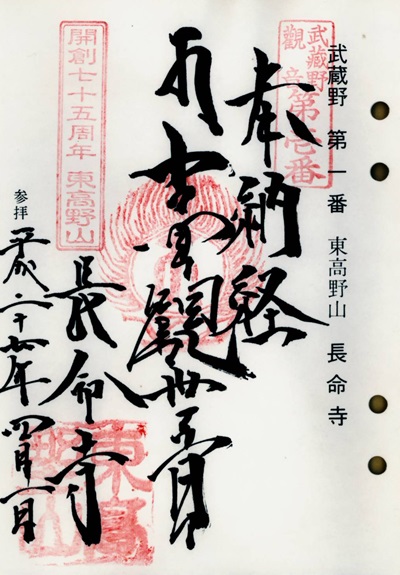 武蔵野 第一番 東高野山 長命寺
武蔵野
觀音
第壱番
奉納経
観世音
開創七十五周年 東高野山
長命寺
東高
野山
参拝
平成二十七年 四月